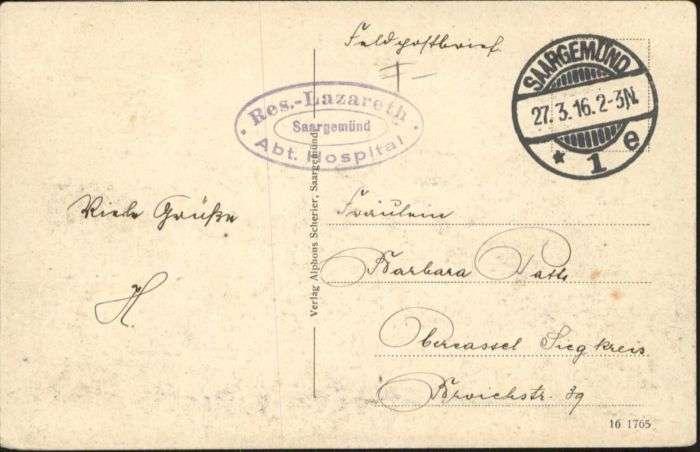 Feldpostbrief
SAARGEMÜND
27.3.16.2-3N.
* 1 e
Res.-Lazareth
Saargemünd
Abt. Hospital
Viele Grüße
H.
Verlag Alphons Scherier, Saargemünd
Fräulein
Barbara
Obercassel Siegkreis
Broichstr. 39
16 1765